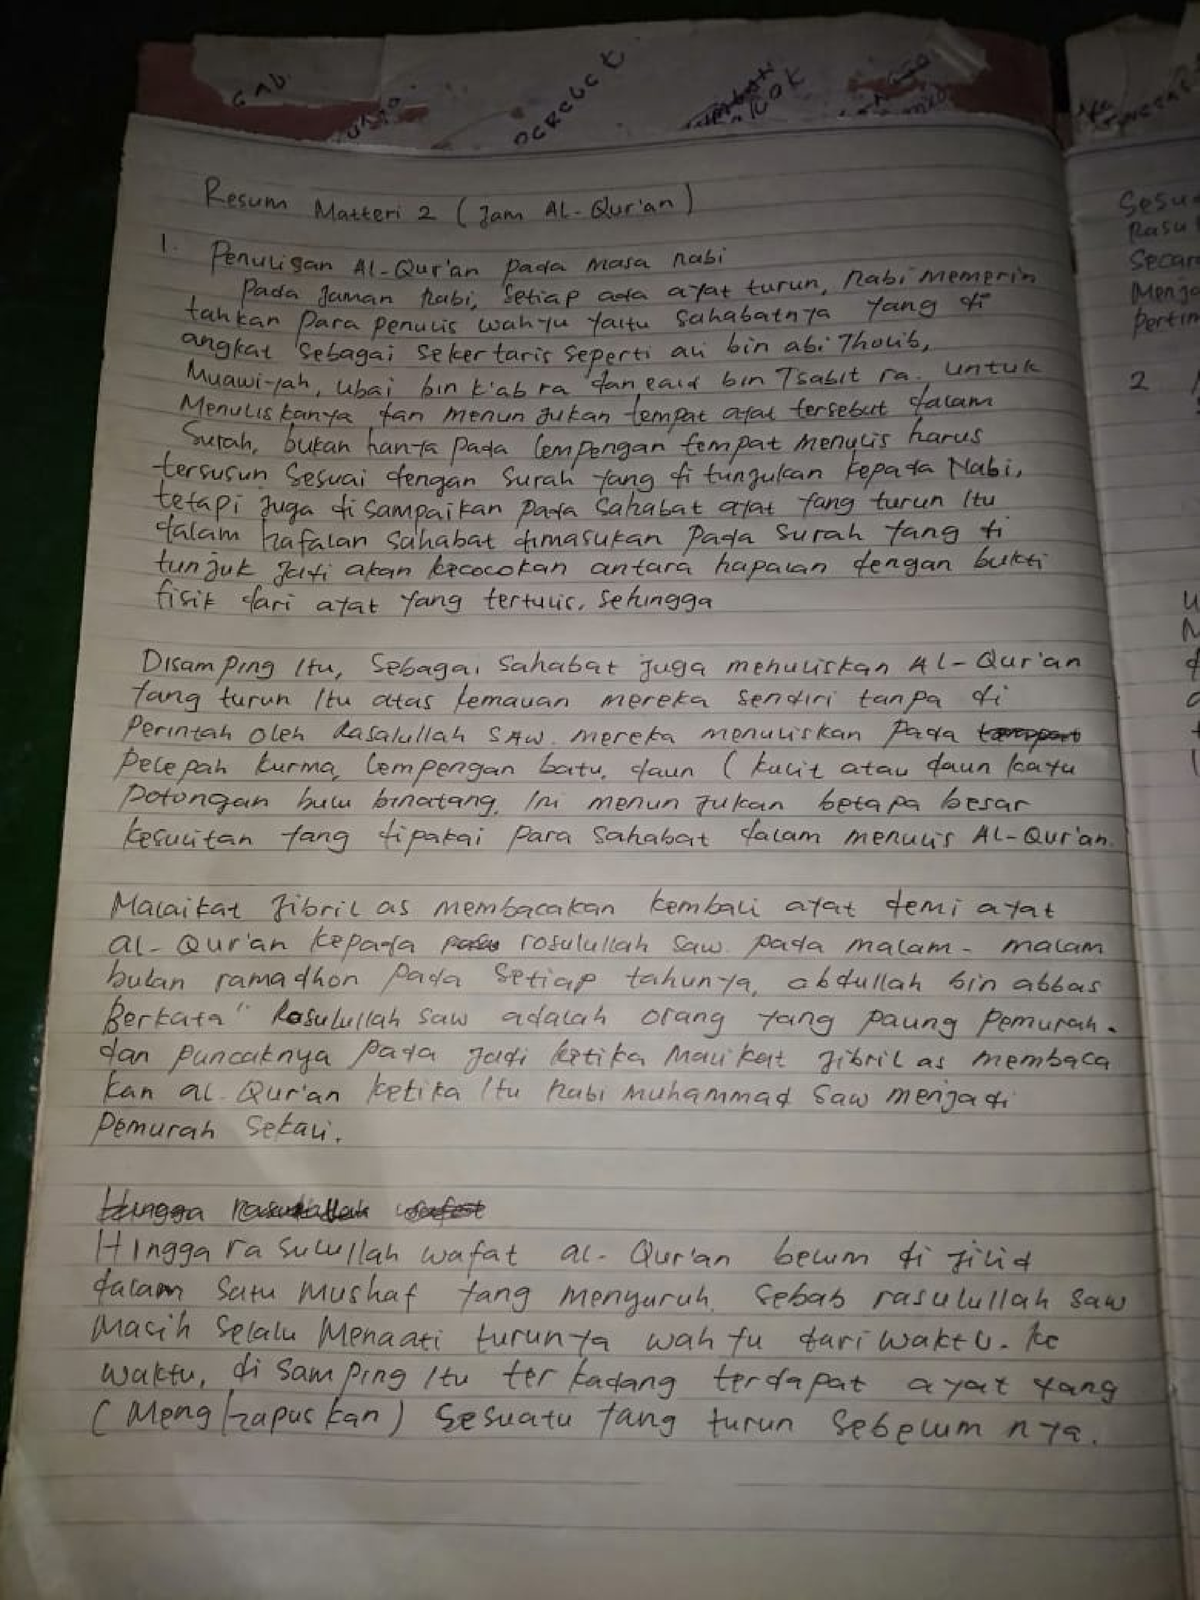 Resum Matteri 2 (Jam AL-Qur'an)
1. Penulisan AL-Qur'an pada masa nabi
Pada Jaman nabi, setiap ada ayat turun, nabi memerin
tahkan Para penulis wahyu yaitu sahabatnya yang di
angkat sebagai sekertaris seperti ali bin abi Tholib,
Muawi-yah, ubai bin k'ab ra dan bin Tsabit ra. untuk
Menuliskanya dan menunjukan tempat ayat tersebut dalam
Surah, bukan hanya pada lempengan tempat menulis harus
tersusun sesuai dengan surah yang di tunjukan kepada Nabi,
tetapi juga di sampaikan pada sahabat ayat yang turun itu
dalam hafalan sahabat dimasukan pada surah yang di
tunjuk jadi akan kecocokan antara hapalan dengan bukti
fisik dari ayat yang tertulis, sehingga
Disamping itu, sebagai sahabat juga menuliskan AL-Qur'an
yang turun itu atas kemauan mereka sendiri tanpa di
perintah oleh Rasalullah SAW. mereka menuliskan pada
pelepah kurma, lempengan batu, daun (kulit atau daun kayu
potongan bulu binatang. Ini menunjukan betapa besar
kesulitan yang dipakai para sahabat dalam menulis AL-Qur'an.
Malaikat Jibril as membacakan kembali ayat demi ayat
al-Qur'an kepada rosulullah saw. pada malam-malam
bulan ramadhon pada setiap tahunya, abdullah bin abbas
Berkata" Rosulullah saw adalah orang yang paung pemurah.
dan puncaknya pada jadi ketika Maikat Jibril as membaca
kan al-Qur'an ketika itu nabi muhammad saw menjadi
pemurah sekali.
Hingga rasulullah wafat al-Qur'an belum di jilid
dalam satu Mushaf yang menyuruh. sebab rasulullah saw
Masih selalu Menaati turunya wahyu dari waktu-ke
waktu, di samping itu terkadang terdapat ayat yang
(Menghapuskan) sesuatu yang turun sebelumnya.
2